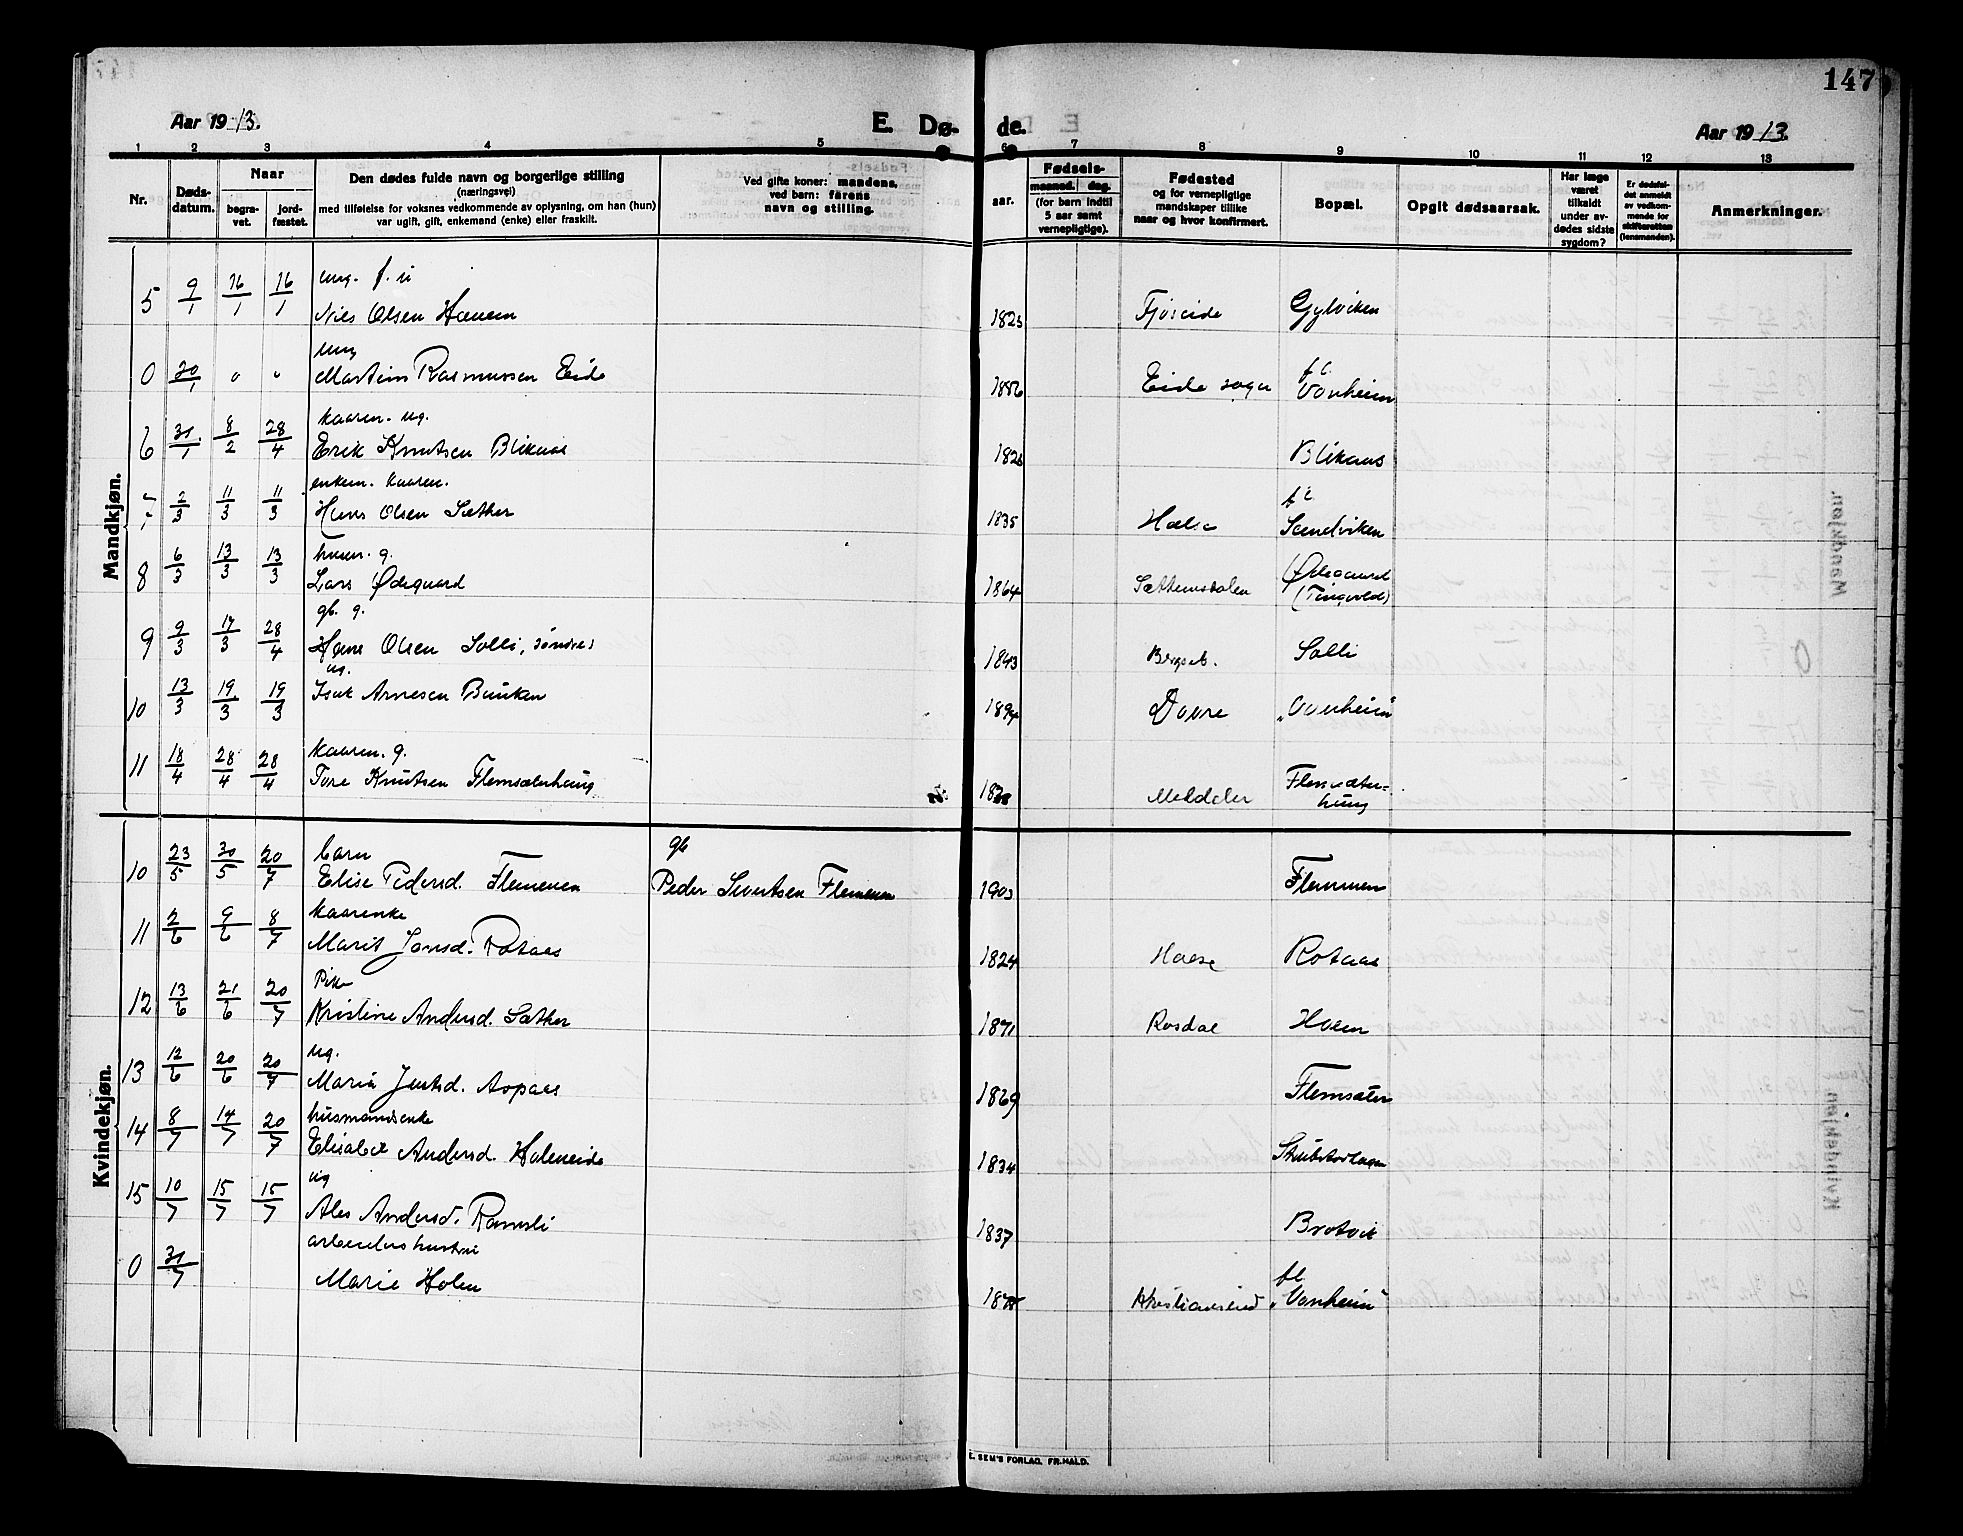 147
Aar 1913.
E. Dø- de.
Aar 1913.
1 2 3 4 5 6 7 8 9 10 11 12 13
Nr.
Døds-
datum.
Naar
begra-
vet.
jord-
fæstet.
Den dødes fulde navn og borgerlige stilling
(næringsvei)
med tilføielse for voksnes vedkommende av oplysning, om han (hun)
var ugift, gift, enkemand (enke) eller fraskilt.
Ved gifte koner: mandens,
ved barn: farens
navn og stilling.
aar.
Fødsels-
maaned. dag.
(for barn indtil
5 aar samt
vernepligtige).
Fødested
og for vernepligtige
mandskaper tillike
naar og hvor konfirmert.
Bopæl.
Opgit dødsaarsak.
Har læge
været
tilkaldt
under av-
dødes sidste
sygdom?
Er dødsfal-
det anmeldt
av vedkom-
mende for
skifteretten
(lensmanden).
Anmerkninger.
Mandkjøn.
ung. f. u
5 9/1 16/1 16/1 Nils Olsen 1823 Gylviken
ung
0 20/1 " " Rasmussen Eide 1886 Eide sogn Vonheim
kaaren. ug.
6 31/1 8/2 28/4 Erik Knutsen Bliknas Bliknas
enkem. kaaren.
2/3 11/3 11/3 Hans Olsen Sæther 1835 Halsa Sandviken
husm. g.
8 6/3 13/3 13/3 Lars Ødegaard 1864 Ødegaard
(Tingvold)
gb. g.
9 9/3 17/3 28/4 Hans Olsen Solli, søndre 1843 Solli
ug.
10 13/3 19/3 19/3 Isak Arnesen 1894 Dovre "Vonheim"
kaaren. g.
11 18/4 28/4 28/4 Tore Knutsen Flemsæterhaug Meldalen Flemsæter-
haug
Kvindekjøn.
barn gb
10 23/5 30/5 20/7 Elise Pedersd. Flemmen Peder Sivertsen Flemmen 1903 Flemmen
kaarenke
11 2/6 9/6 8/7 Marit Jonsd. Rotaas 1824 Halsa Rotaas
Pike
12 13/6 21/6 20/7 Kristine Andersd. Sæther 1871 Hoem
ug.
13 12/6 20/6 20/7 Maria Aspaas 1869 Flemsæter
husmandsenke
14 8/7 14/7 20/7 Elisabet Andersd. Holeneide 1834
ug
15 10/7 15/7 15/7 Ales Andersd. Ramsli 1837 Brotvik
arbeiders hustru
0 31/7 Marie Holen Kristiansund "Vonheim"
E. SEM'S FORLAG, FR.HALD.